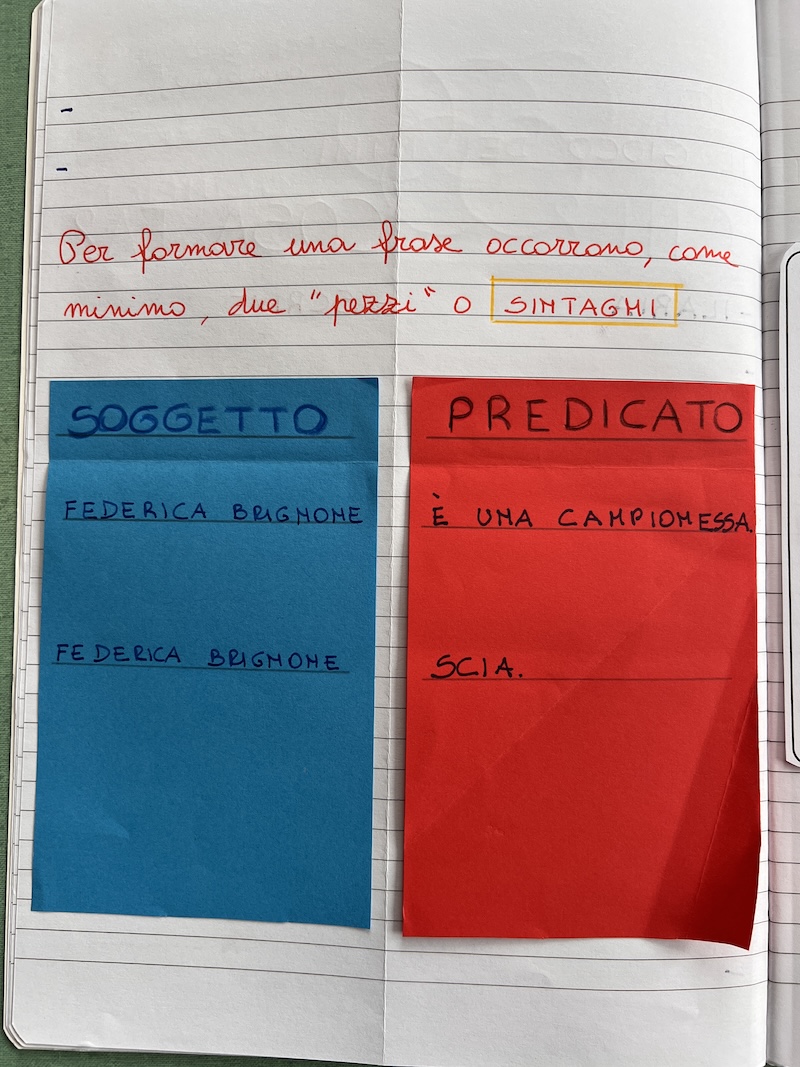 -
-
Per formare una frase occorrono, come
minimo, due "pezzi" o SINTAGMI
SOGGETTO
PREDICATO
FEDERICA BRIGNONE
È UNA CAMPIONESSA.
FEDERICA BRIGNONE
SCIA.